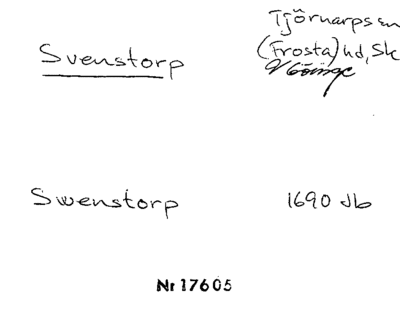 Tjörnarps sn
Svenstorp
(Frosta) hd, Sk
V Göinge
Swenstorp
1690 Jb
Nr 17605